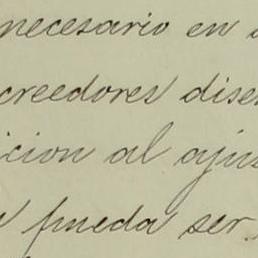 necesario en
creedores disen
icion al ajus
pueda ser